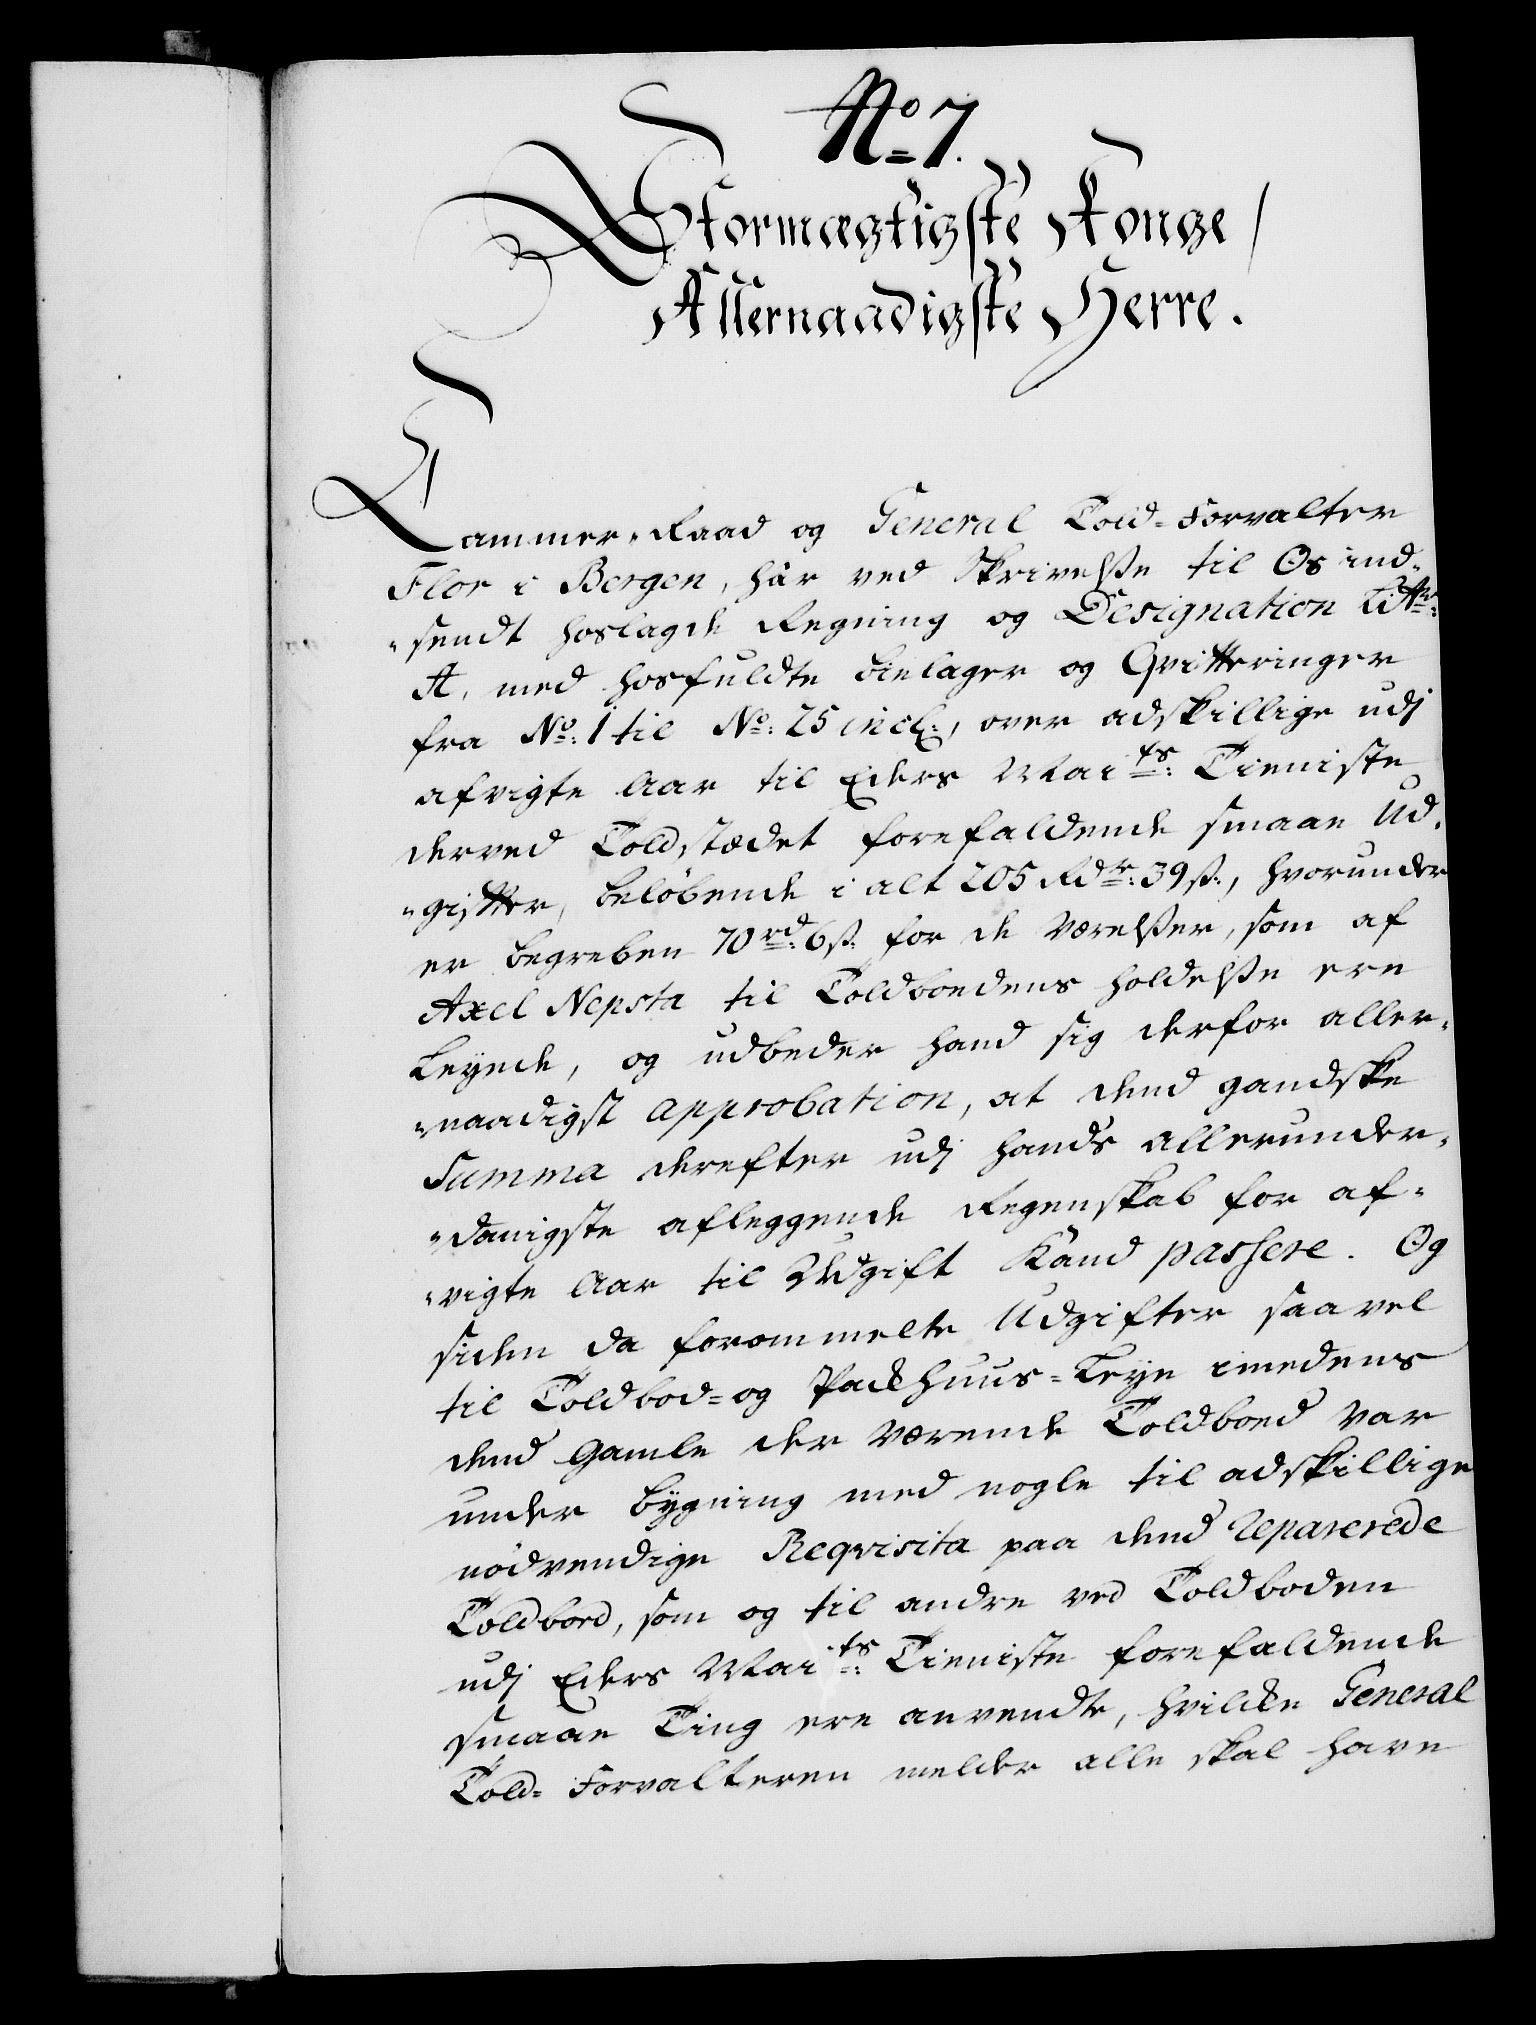 No 7.
Stormægtigste Konge
Allernaadigste Herre.
Cammer-Raad og General Told-Forvalter
Flor i Bergen, har ved Skrivelse til Os ind-
sendt hoslagde Regning og Designation Littr:
A, med hosfuldte bielager og Qvitteringer
fra No: 1 til No: 25 incl:, over adskillige udj
afvigte Aar til Eders Maits: Tieniste
derved Toldstædet forefaldende smaae Ud-
gifter, beløbende i alt 205 Rdr: 39 ß:, hvorunder
er begreben 70 rd: 6 ß: for de Værelser, som af
Axel Nepsta til Toldboedens holdelse ere
Leyede, og udbeder hand sig derfor aller-
naadigst approbation, at dend gandske
Summa derefter udj hands allerunder-
danigste aflæggende Regenskab for af-
vigte Aar til Udgift kand passere. Og
siden da forommelte Udgifter saavel
til Toldbod- og Pakhuus-Leye imedens
dend Gamle der værende Toldboed var
under bygning med nogle til adskillige
nødvendige Reqvisita paa dend reparerede
Toldboed, som og til andre ved Toldboden
udj Eders Maits: Tieniste forefaldende
smaae Ting ere anvendte, hvilken General
Told-Forvalteren melder alle skal have